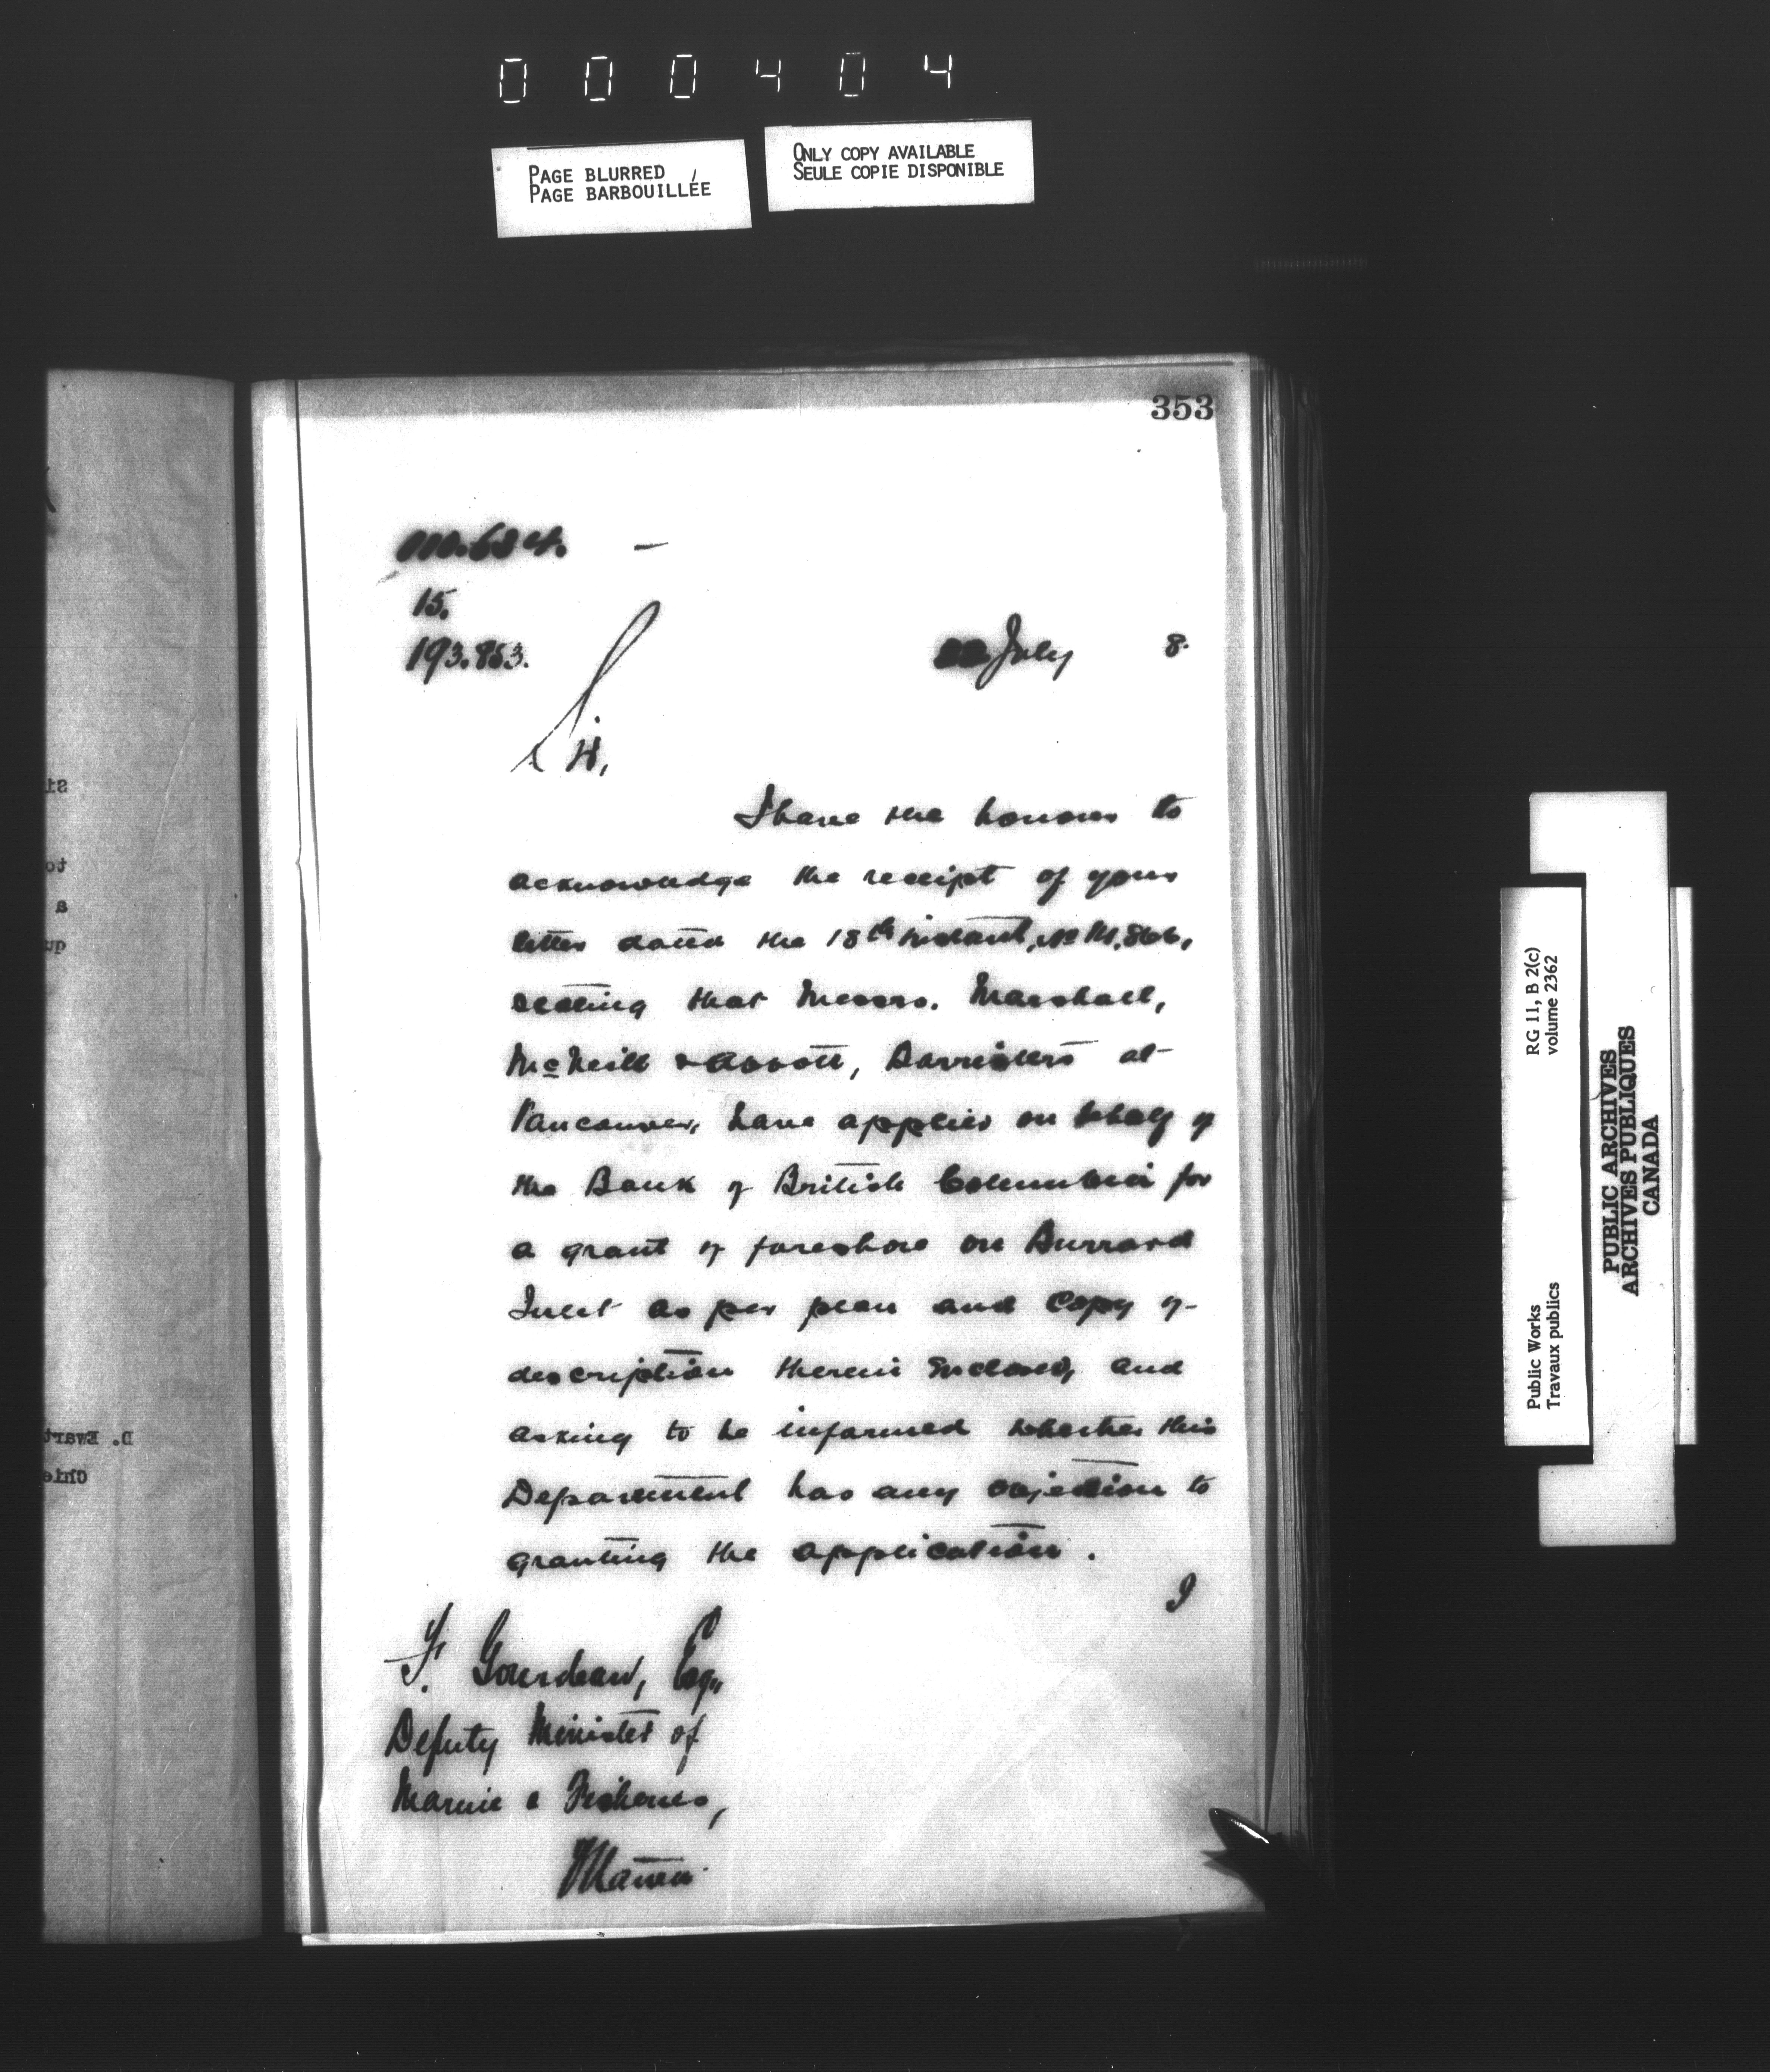 000404
PAGE BLURRED
PAGE BARBOUILLÉE
ONLY COPY AVAILABLE
SEULE COPIE DISPONIBLE
353
15.
193.853.
22 July 8.
Sir,
I have the honour to
acknowledge the receipt of your
letter dated the 18th instant, No M. 866,
stating that Messrs. Marshall,
McNeill & Abbott, Barristers at
Vancouver, have applied on behalf of
the Bank of British Columbia for
a grant of foreshore on Burrard
Inlet as per plan and copy of
description therein enclosed, and
asking to be informed whether this
Department has any objection to
granting the application.
I
F. Gourdeau, Esq.,
Deputy Minister of
Marine & Fisheries,
Ottawa.
D. Ewart
Chie
RG 11, B 2(c)
volume 2362
Public Works
Travaux publics
PUBLIC ARCHIVES
ARCHIVES PUBLIQUES
CANADA